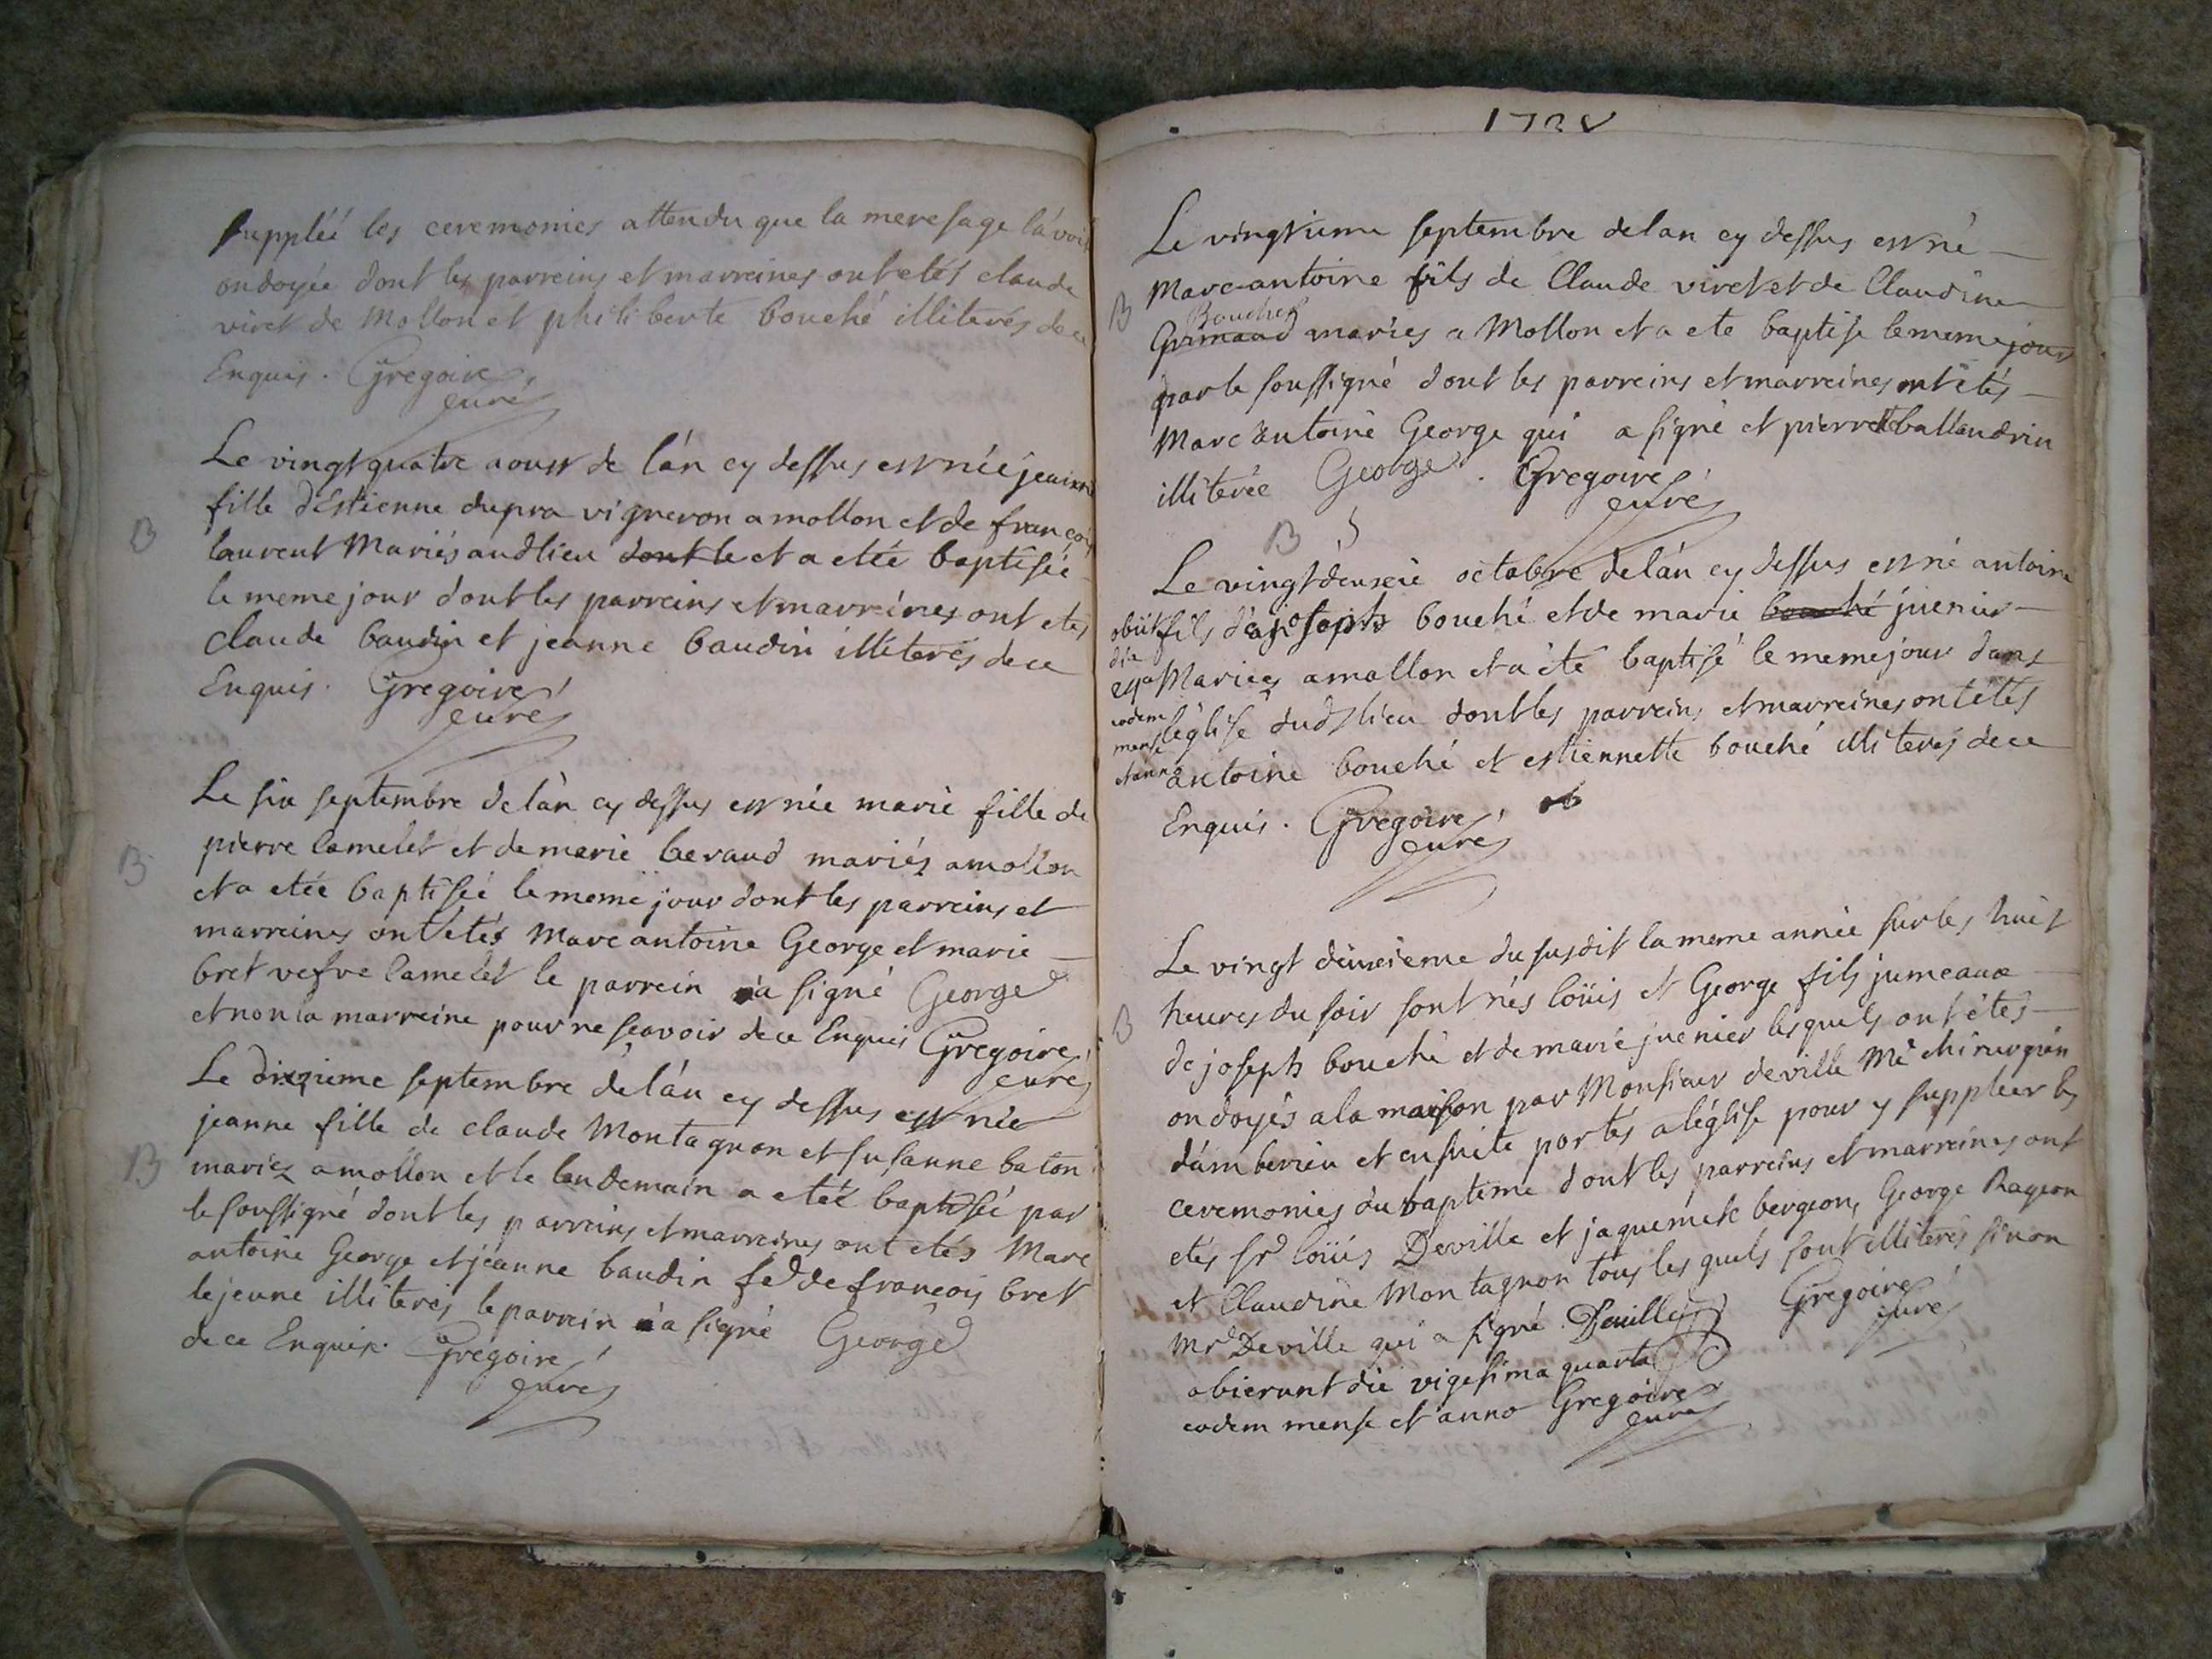 suppléé les ceremonies attendu que la mere sage l'avoit
ondoyée dont les parreins et marreines ont etés claude
viret de Mollon et philiberte bouché illiterés de ce
Enquis. Gregoire
curé
Le vingt quatre aoust de l'án cy dessus est née jeanne
B
fille d'Estienne dupra vigneron a mollon et de françois
laurent Mariés audlieu dont le et a etée baptisée
le meme jour dont les parreins et marreines ont etés
claude baudin et jeanne baudin illiterés de ce
Enquis. Gregoire
curé
Le six septembre de l'an cy dessus est née marie fille de
B
pierre lamelet et de marie beraud mariés a mollon
et a etée baptisée le meme jour dont les parreins et
marreines ont etés Marc antoine George et marie
bret vefve lamelet le parrein a signé George
et non la marreine pour ne scavoir de ce Enquis Gregoire
curé
Le dixieme septembre de l'án cy dessus est née
jeanne fille de claude Montagnon et susanne baton
B
mariez a mollon et le lendemain a etée baptisée par
le soussigné dont les parreins et marreines ont etés Marc
antoine George et jeanne baudin fe de francois bret
le jeune illiterés le parrein a signé George
de ce Enquis. Gregoire
curé
Le vingtieme septembre de lan cy dessus est né
Marc antoine fils de Claude viret et de Claudine
B
Bouchet
Grimaud mariés a Mollon et a ete baptisé le meme jour
par le soussigné dont les parreins et marreines ont etés
Marc antoine George qui a signé et pierrette ballandrin
illiterée George. Gregoire
curé
B
Le vingt deuxié octobre de l'án cy dessus est né antoine
fils de joseph bouché et de marie bouché juenier
Mariés a mollon et a été baptisé le meme jour dans
l'église dud lieu dont les parreins et marreines ont étés
antoine bouché et estiennette bouché illiterés de ce
Enquis. Gregoire
curé
obiit
die
eodem
mense
et anno
Le vingt deuxieme du susdit la meme année sur les huit
heures du soir sont nés loüis et George fils jumeaux
B
de joseph bouché et de marie juenier lesquels ont étés
ondoyés a la maison par Monsieur deville Me chirurgien
d'ámberieu et ensuite portés a l'église pour y suppleer les
ceremonies du bapteme dont les parreins et marreines ont
etés sr loüis Deville et jaquemete bergeon, George Rageon
et Claudine Montagnon tous les quels sont illiterés sinon
Mr Deville qui a signé. Deville Gregoire
curé
obierunt die vigesima quarta
eodem mense et anno Gregoire
curé